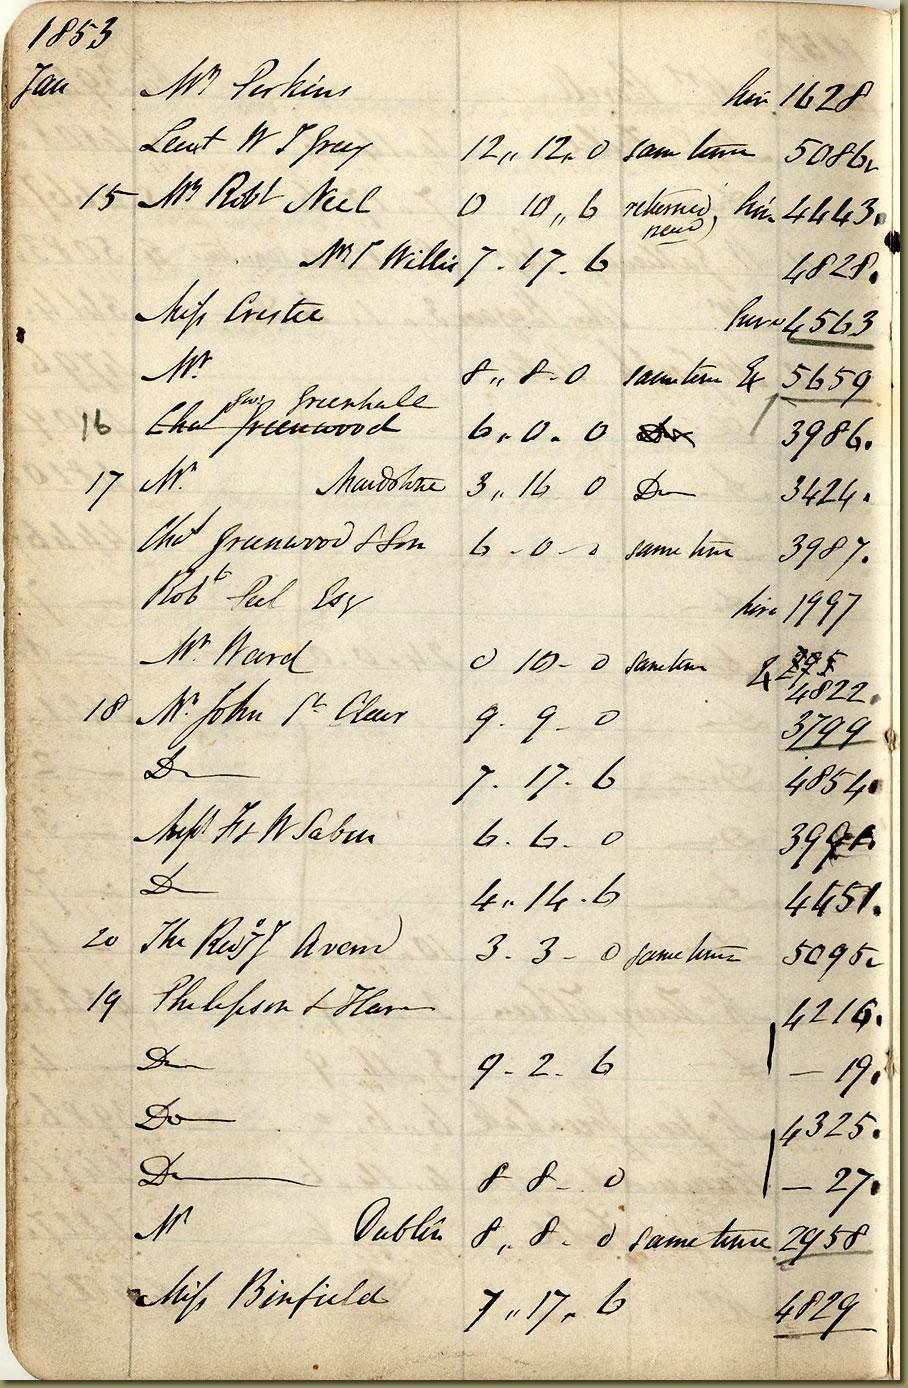 1853
Jan Mr Perkins hire 1628
Lieut W T Grey 12,, 12,, 0 same time 5086.
15 Mr Robt Neel 0 10,, 6 returned, hire 4443.
new)
Mr T Willis 7 . 17 . 6 4828.
Miss Crestee hire 4563
Mr 8,, 8 - 0 same time Ex 5659
Greenhall
16 Chas Greenwood 6,, 0 . 0 Do 3986.
17 Mr Maidstone 3,, 16 0 Do 3424.
Chas Greenwood & Son 6 - 0 - 0 same time 3987.
Robt Peel Esq hire 1997
Mr Ward 0 10 - 0 same time Ex
4822.
18 Mr John St Clair 9 . 9 - 0 3799
Do 7 . 17 . 6 4854.
Messrs H & W Sabin 6 . 6 . 0
Do 4,, 14 . 6 4451.
20 The Revd J Avend 3 . 3 - 0 same time 5095.
19 Philipson & Hare 4216.
Do 9 - 2 . 6 – 19.
Do 4325.
Do 8 8 - 0 – 27.
Mr Dublin 8,, 8 - 0 same time 2958
Miss Binfield 7,, 17,, 6 4829